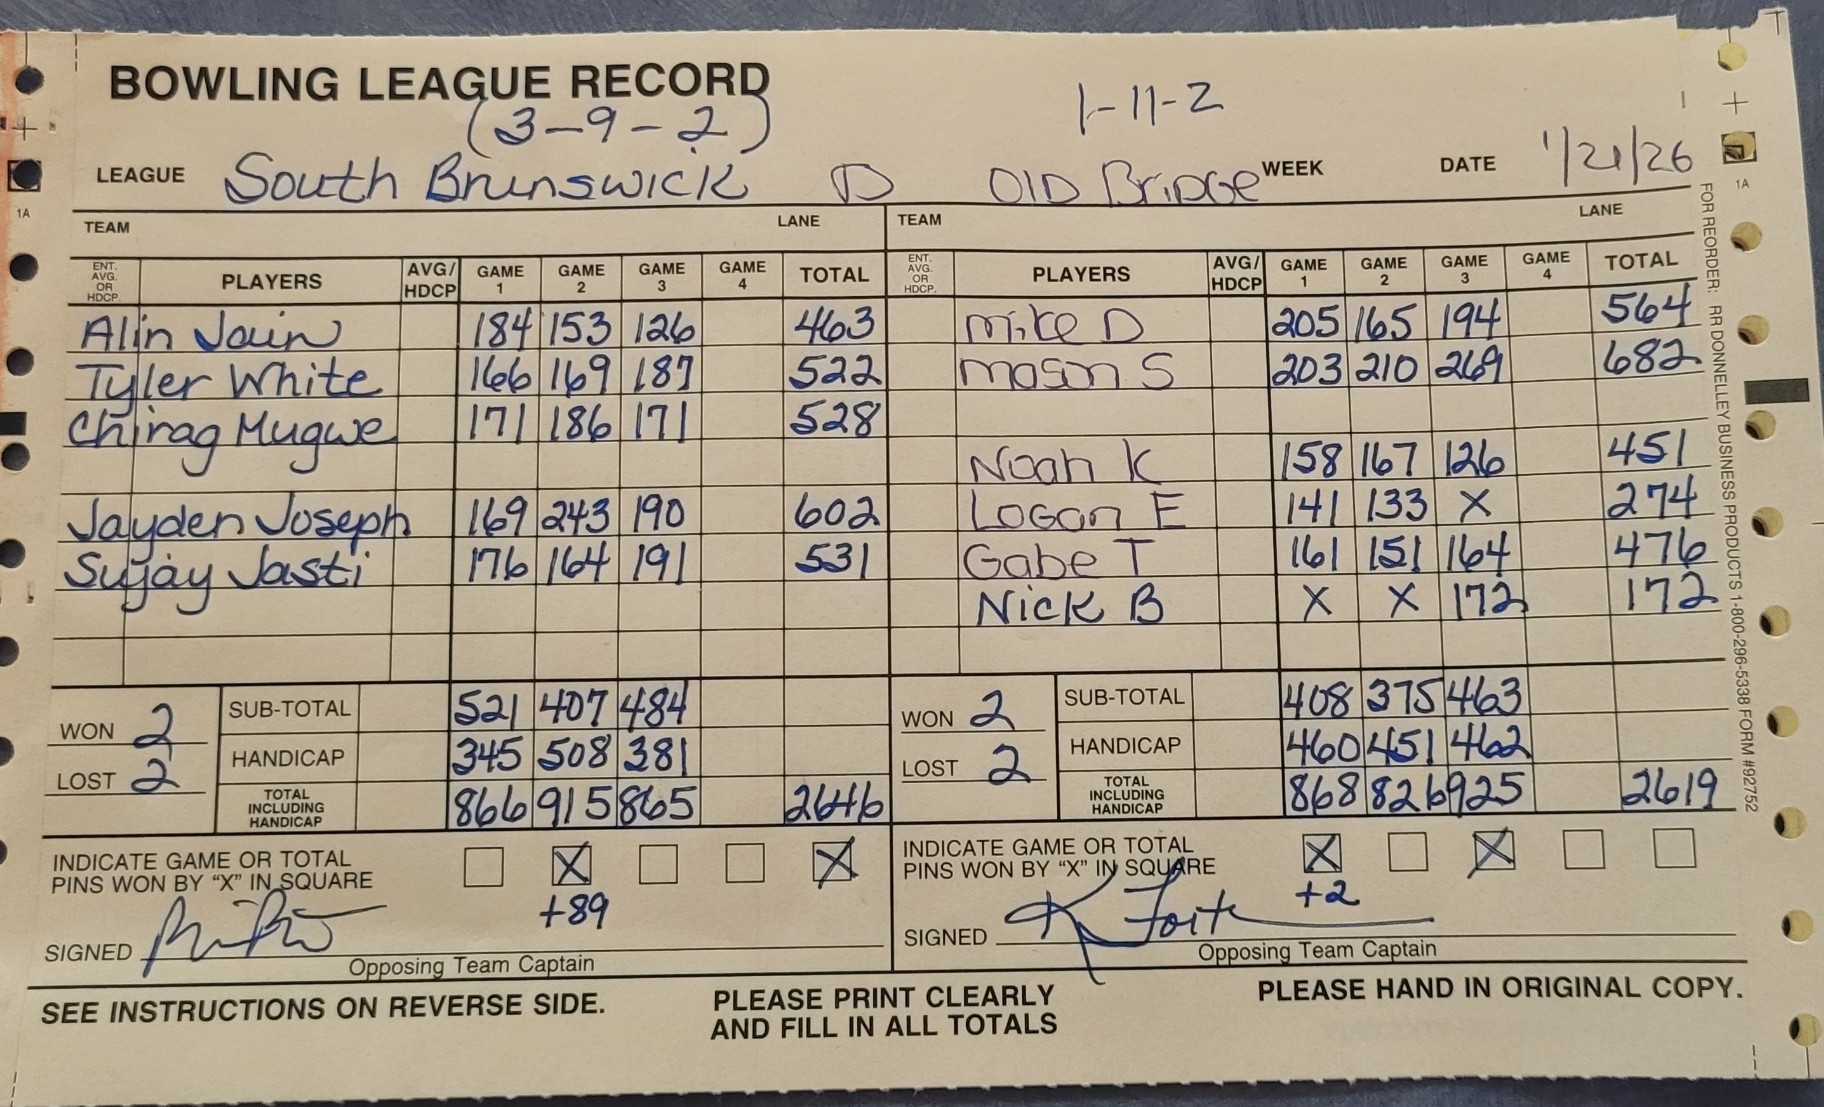 BOWLING LEAGUE RECORD
(3-9-2) 1-11-2
LEAGUE South Brunswick D Old Bridge WEEK DATE 1/21/26
1A 1A
TEAM LANE TEAM LANE
ENT. AVG. OR HDCP. PLAYERS AVG/HDCP GAME 1 GAME 2 GAME 3 GAME 4 TOTAL ENT. AVG. OR HDCP. PLAYERS AVG/HDCP GAME 1 GAME 2 GAME 3 GAME 4 TOTAL
Alin Jain 184 153 126 463 Mike D 205 165 194 564
Tyler White 166 169 187 522 Mason S 203 210 269 682
Chirag Mugwe 171 186 171 528
Noah K 158 167 126 451
Jayden Joseph 169 243 190 602 Logan E 141 133 X 274
Sujay Jasti 176 164 191 531 Gabe T 161 151 164 476
Nick B X X 172 172
WON 2 SUB-TOTAL 521 407 484 WON 2 SUB-TOTAL 408 375 463
LOST 2 HANDICAP 345 508 381 LOST 2 HANDICAP 460 451 462
TOTAL INCLUDING HANDICAP 866 915 865 2646 TOTAL INCLUDING HANDICAP 868 826 925 2619
INDICATE GAME OR TOTAL X X INDICATE GAME OR TOTAL X X
PINS WON BY "X" IN SQUARE PINS WON BY "X" IN SQUARE
+89 +2
SIGNED SIGNED K Forte
Opposing Team Captain Opposing Team Captain
SEE INSTRUCTIONS ON REVERSE SIDE. PLEASE PRINT CLEARLY PLEASE HAND IN ORIGINAL COPY.
AND FILL IN ALL TOTALS
FOR REORDER: RR DONNELLEY BUSINESS PRODUCTS 1-800-296-5338 FORM #92752